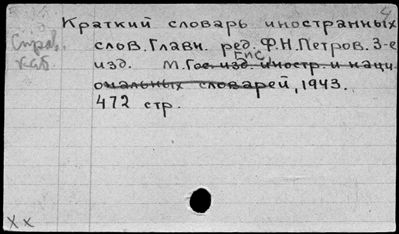 4
Краткий словарь иностранных
Справ. каб
слов. Главн. ред. Ф.Н. Петров. 3-е
ГИС
изд. М. Гос. изд. иностр. и наци
ональных словарей, 1943.
472 стр.
X X